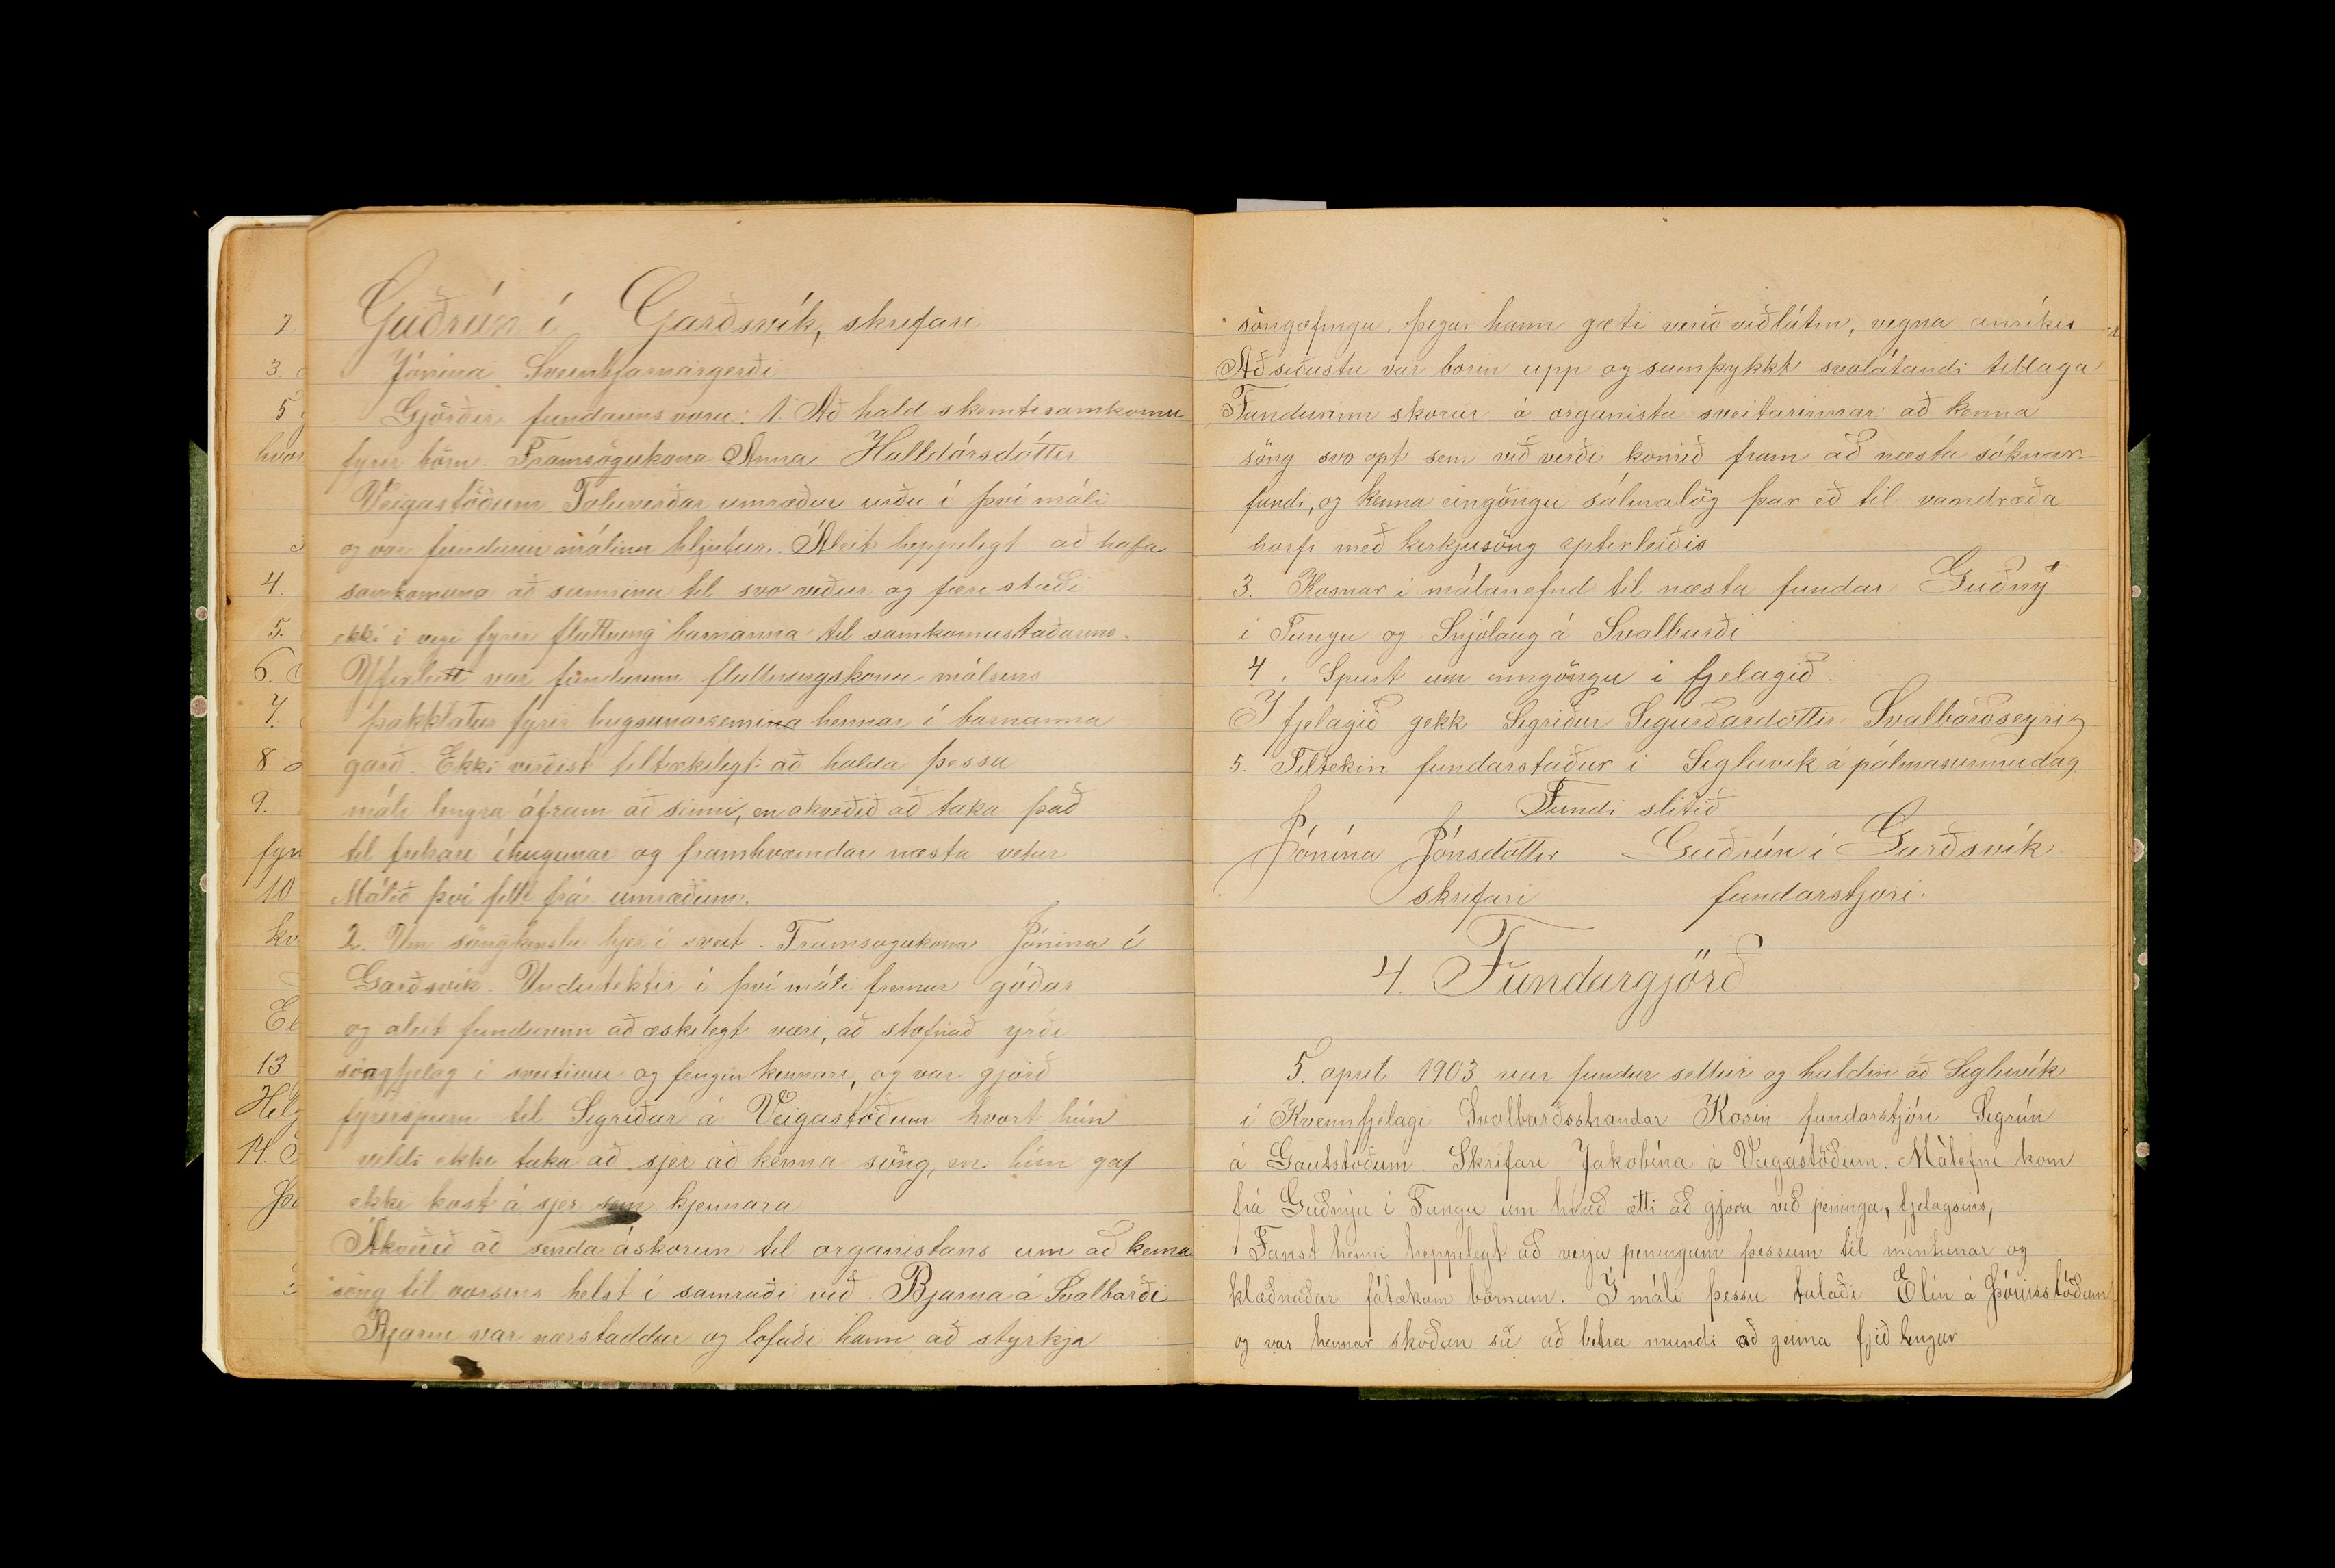 Guðrún í Garðsvík, skrifari
Jónína Sveinbjarnargerði
Gjörðir fundarins voru: 1. Að hald skemtisamkomu
fyrir börn. Framsögukona Anna Halldórsdóttir
Veigastöðum. Töluverðar umræður urðu í því máli
og var fundurin málinu hlyntur. Áleit heppilegt að hafa
samkomuna að sumrinu til svo veður og færi stæði
ekki í vegi fyrir flutning barnanna til samkomustaðarins.
Yfirleitt var fundurinn flutningskonu málsins
þakklátur fyrir hugsunarsemina hennar í barnanna
garð. Ekki virðist tiltækilegt að halda þessu
máli lengra áfram að sinni, en akveðið að taka það
til frekari íhugunar og framkvæmdar næsta vetur
Málið því fellt frá umræðum.
2. Um söngkenslu hjer í sveit. Framsögukona Jónína í
Garðsvík. Undirtektir í því máli fremur góðar
og aleit fundurinn að æskilegt væri, að stofnað yrði
söngfjelag í sveitinni og fengin kennari, og var gjörð
fyrirspurn til Sigríðar á Veigastöðum hvort hún
vildi ekki taka að sjer að kenna söng, en hún gaf
ekki kost á sjer sem kjennara
Ákveðið að senda áskorun til organistans um að kenna
söng til vorsins helst í samráði við Bjarna á Svalbarði
Bjarni var nærstaddur og lofaði hann að styrkja
söngæfingu, þegar hann gæti verið viðlátin, vegna annríkis
Að síðustu var borin upp og samþykkt svolátandi tillaga
Fundurinn skorar á organista sveitarinnar að kenna
söng svo opt sem við verði komið fram að næsta sóknar-
fundi, og kenna eingöngu sálmalög þar eð til vandræða
horfi með kirkjusöng eptirleiðis
3. Kosnar í málanefnd til næsta fundar Guðný
í Tungu og Snjólaug á Svalbarði
4. Spurt um inngöngu í fjelagið.
Í fjelagið gekk Sigríður Sigurðardóttir Svalbarðseyri
5. Tiltekin fundarstaður í Sigluvík á pálmasunnudag
Fundi slitið
Jónína Jónsdóttir Guðrún í Garðsvík
skrifari fundarstjori.
4. Fundargjörð
5. apríl 1903 var fundur settur og haldin að Sigluvík
í Kvennfjelagi Svalbarðsstrandar Kosin fundarstjóri Sigrún
á Gautstöðum. Skrifari Jakobína á Veigastöðum. Málefni kom
frá Guðnýu í Tungu um hvað ætti að gjora við peninga fjelagsins,
Fanst henni heppilegt að verja peningum þessum til mentunar og
klæðnaðar fátækum börnum. Í máli þessu talaði Elín á Þórisstöðum
og var hennar skoðun sú að betra mundi að geima fjeð lengur